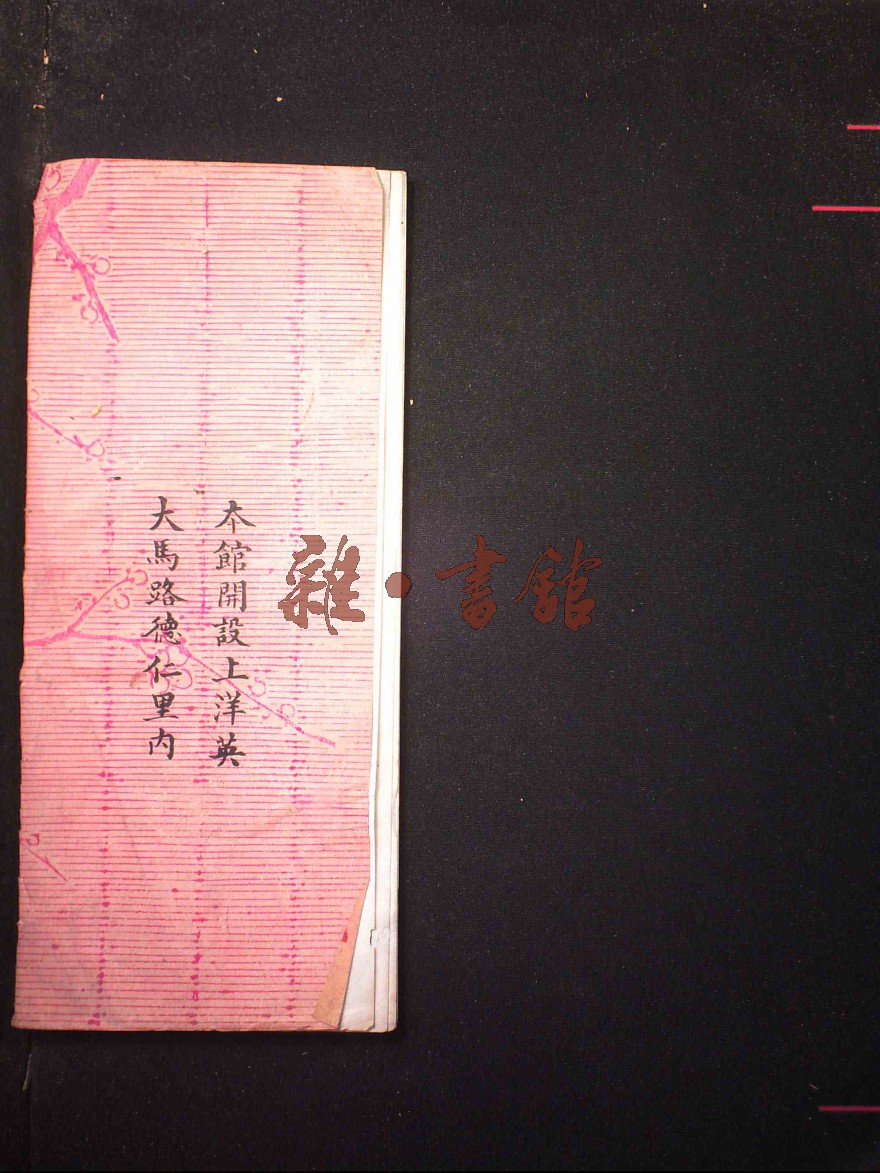 本館開設上洋英
大馬路德仁里内
雜·書館